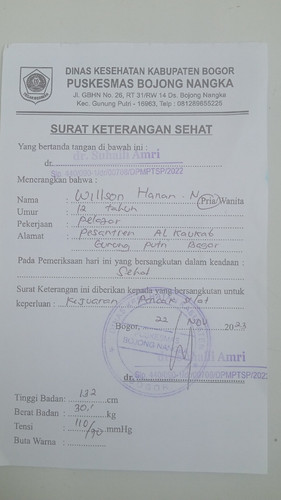 DINAS KESEHATAN KABUPATEN BOGOR
PUSKESMAS BOJONG NANGKA
Jl. GBHN No. 26, RT 31/RW 14 Ds. Bojong Nangka
Kec. Gunung Putri - 16963, Telp : 081289655225
SURAT KETERANGAN SEHAT
Yang bertanda tangan di bawah ini :
dr. dr. Suhaili Amri
/DPMPTSP/2022
Menerangkan bahwa :
Nama : Willson Hanan . N Pria/Wanita
Umur : 12 tahun
Pekerjaan : Pelajar
Alamat : Pesantren AL
Gunung Putri Bogor
Pada Pemeriksaan hari ini yang bersangkutan dalam keadaan :
Sehat
Surat Keterangan ini diberikan kepada yang bersangkutan untuk
keperluan : Kejuaran Pencak Silat
Bogor, 22 Nov 2023
BOJONG NANGKA
Amri
dr.
/DPMPTSP/2022
Tinggi Badan: 132 cm
Berat Badan : 30,1 kg
Tensi : 110/90 mmHg
Buta Warna :